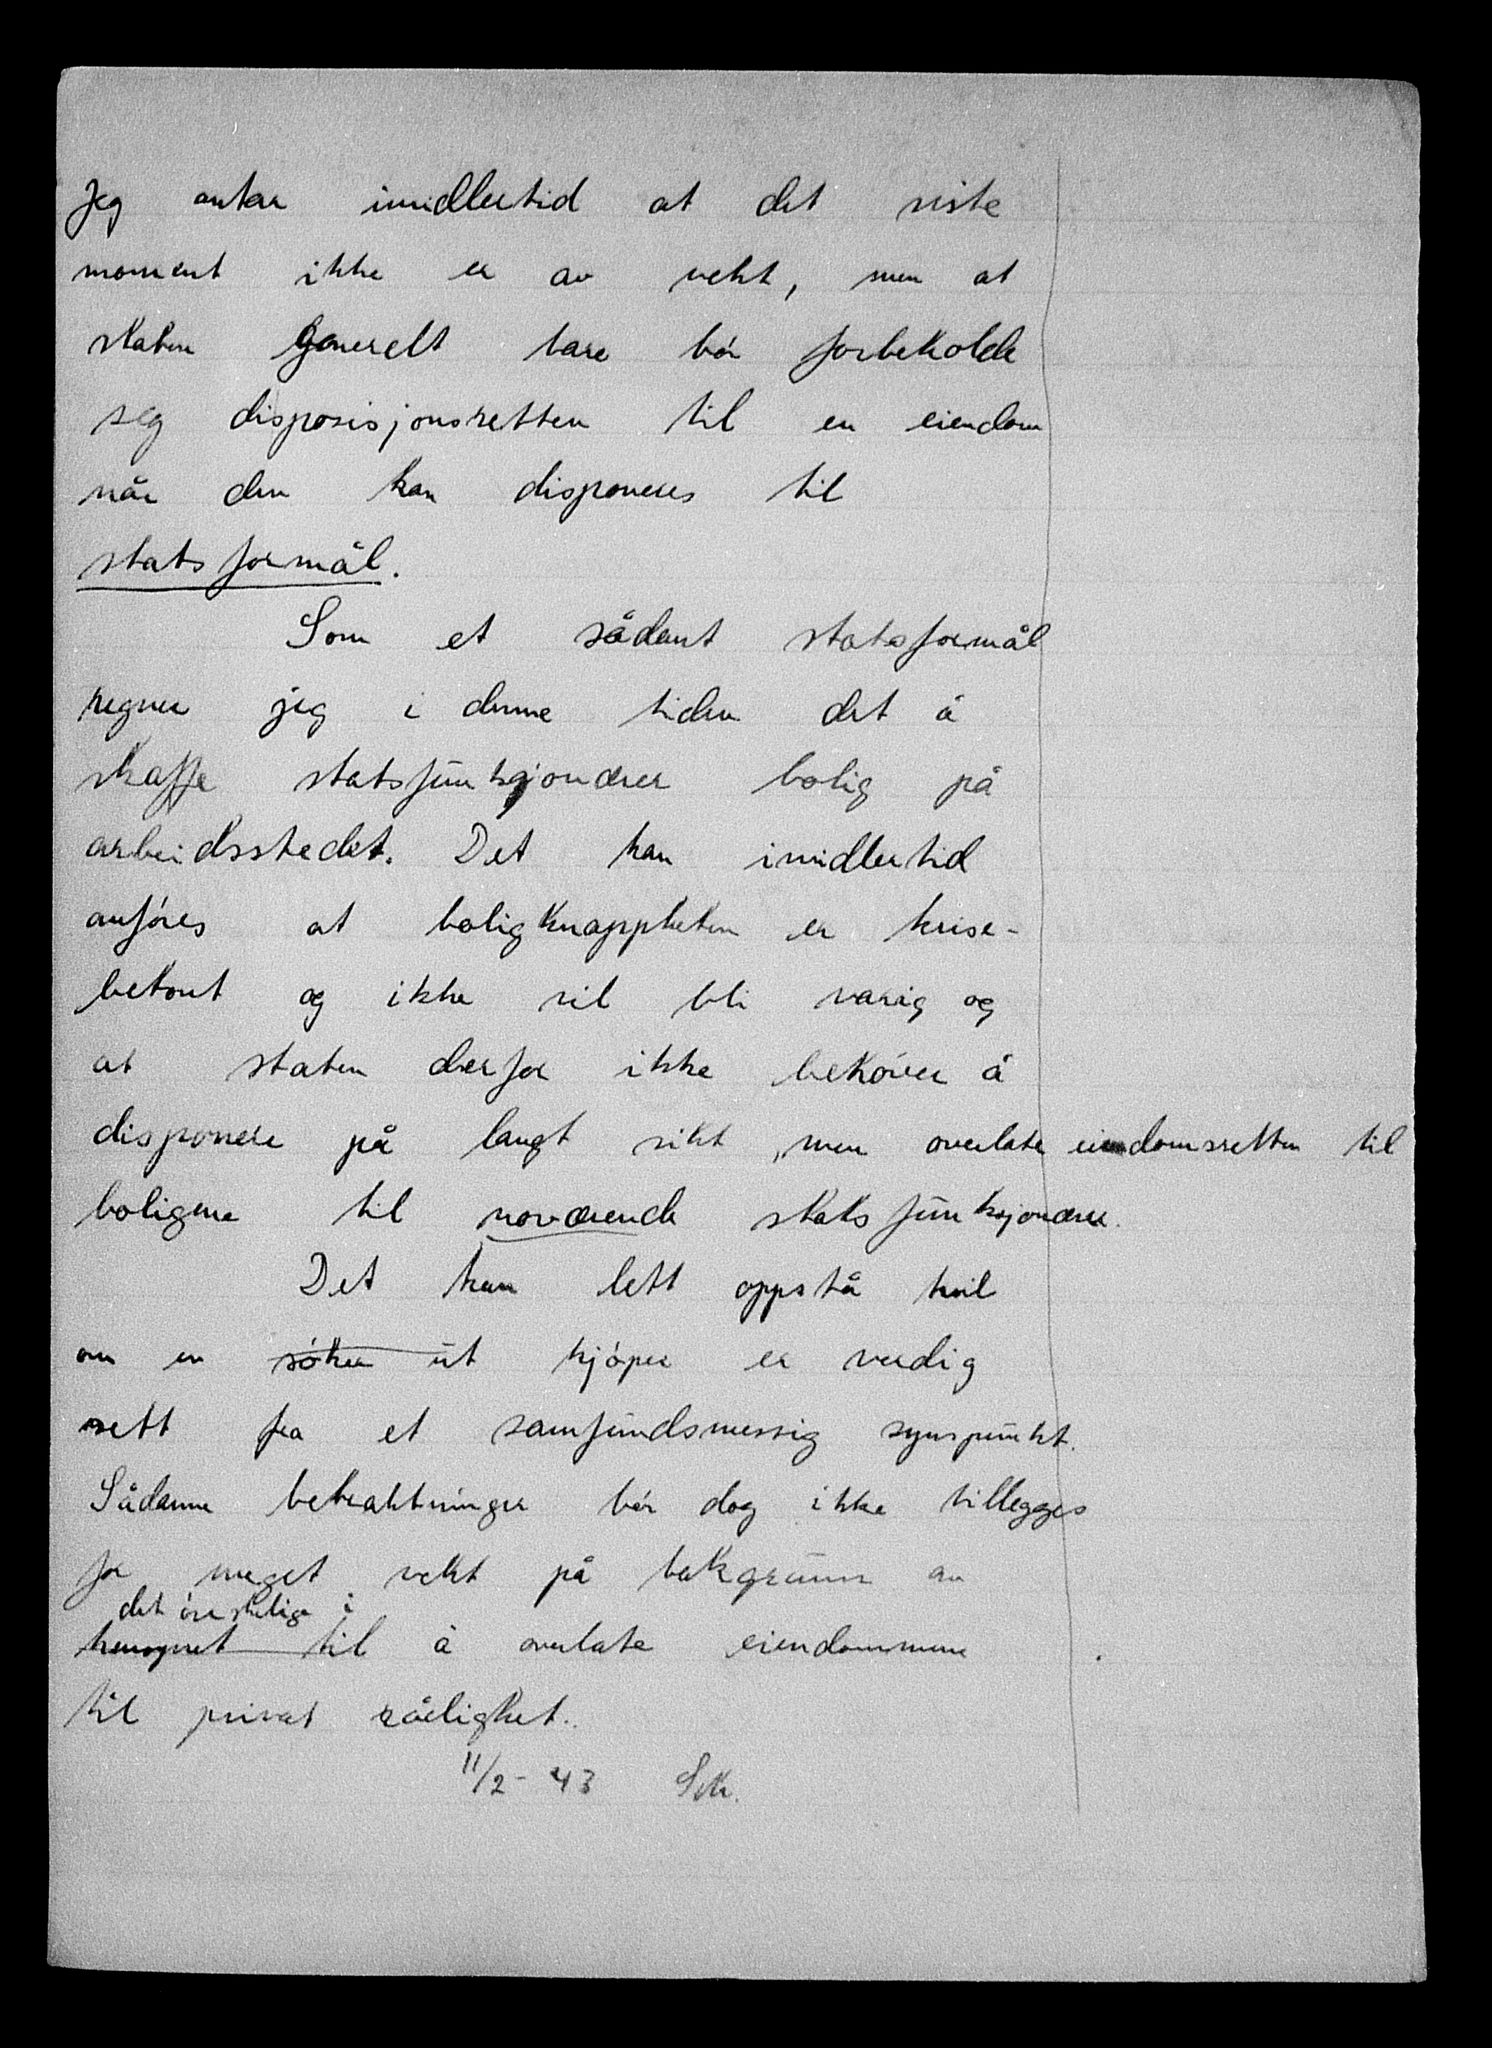 Jeg antar imidlertid at det siste
moment ikke er av vekt, men at
staten generelt bare bør forbeholde
seg disposisjonsretten til en eiendom
når den kan disponeres til
statsformål.
Som et sådant statsformål
regner jeg i denne tiden det å
skaffe statsfunksjonærer bolig på
arbeidsstedet. Det kan imidlertid
anføres at boligknappheten er krise-
betont og ikke vil bli varig og
at staten derfor ikke behøver å
disponere på langt sikt, men overlate eiendomsretten til
boligene til nåværende statsfunksjonærer.
Det kan lett oppstå tvil
om en søker ut kjøper er verdig
sett fra et samfundsmessig synspunkt.
Sådanne betraktninger bør dog ikke tillegges
for meget vekt på bakgrunn av
det ønskelige i
hensynet til å overlate eiendommene
til privat rådighet.
11/2 - 43 Sk.